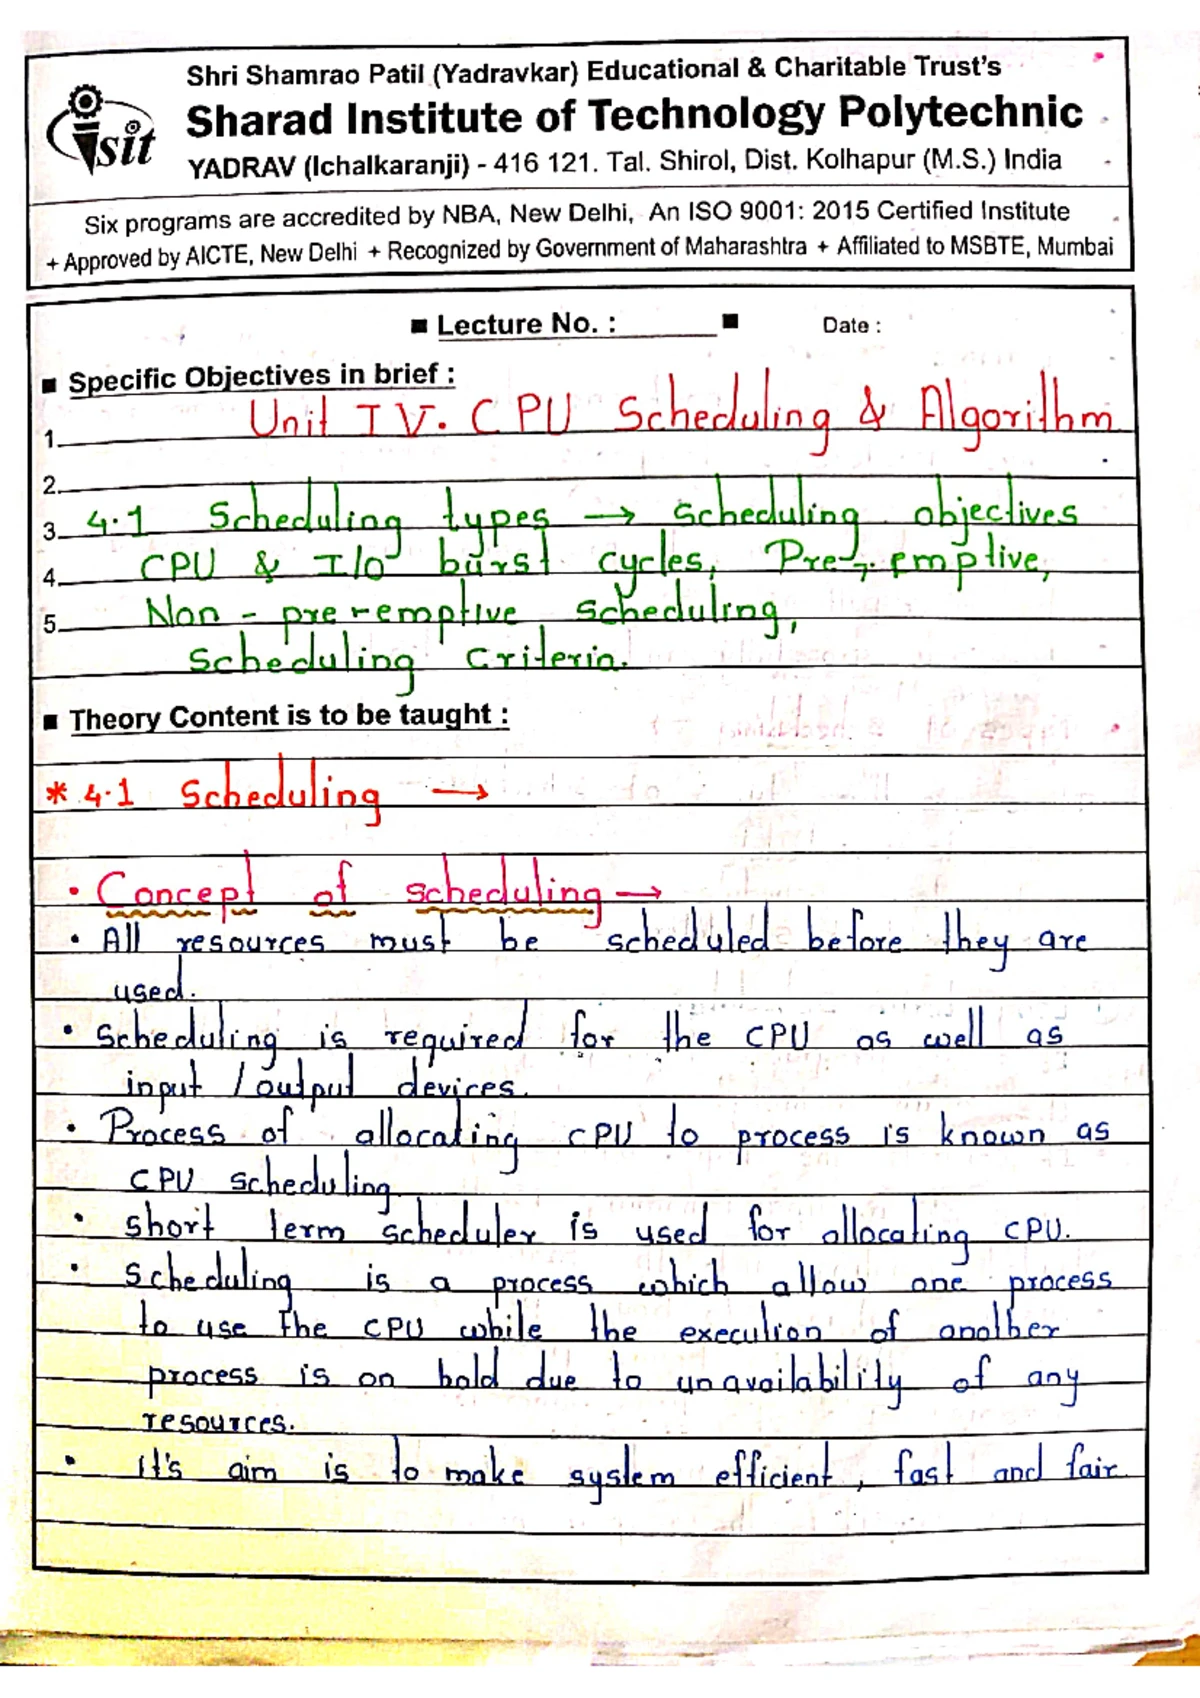 Shri Shamrao Patil (Yadravkar) Educational & Charitable Trust's
Sharad Institute of Technology Polytechnic
sit
YADRAV (Ichalkaranji) - 416 121. Tal. Shirol, Dist. Kolhapur (M.S.) India
Six programs are accredited by NBA, New Delhi, An ISO 9001: 2015 Certified Institute
+ Approved by AICTE, New Delhi + Recognized by Government of Maharashtra + Affiliated to MSBTE, Mumbai
■ Lecture No. : ______ ■ Date :
■ Specific Objectives in brief :
1. Unit IV. CPU Scheduling & Algorithm
2.
3. 4.1 Scheduling types → scheduling objectives
4. CPU & I/O burst cycles, Pre-emptive,
5. Non - pre-emptive scheduling,
scheduling criteria.
■ Theory Content is to be taught :
* 4.1 Scheduling →
• Concept of scheduling →
• All resources must be scheduled before they are
used.
• scheduling is required for the CPU as well as
input / output devices.
• Process of allocating CPU to process is known as
CPU scheduling
• short term scheduler is used for allocating CPU.
• scheduling is a process which allow one process
to use the CPU while the execution of another
process is on hold due to unavailability of any
resources.
• it's aim is to make system efficient, fast and fair